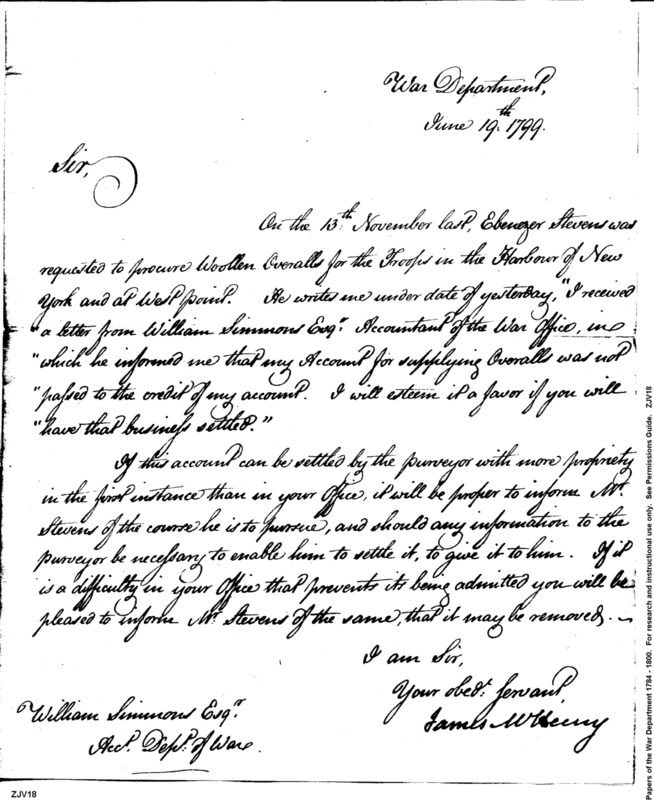 War Department,
June 19th. 1799.
Sir,
On the 13th. November last, Ebenezer Stevens was
requested to procure Woollen Overalls for the Troops in the Harbour of New
York and at West point. He writes me under date of yesterday, "I received
"a letter from William Simmons Esqr. Accountant of the War Office, in
"which he informed me that my Account for supplying Overalls was not
"passed to the credit of my account. I will esteem it a favor if you will
"have that business settled."
If this account can be settled by the purveyor with more propriety
in the first instance than in your Office, it will be proper to inform Mr.
Stevens of the course he is to pursue, and should any information to the
purveyor be necessary to enable him to settle it, to give it to him. If it
is a difficulty in your Office that prevents its being admitted you will be
pleased to inform Mr. Stevens of the same, that it may be removed.
I am Sir,
Your obedt. servant,
James McHenry
William Simmons Esqr.
Acct. Dept. of War.
ZJV18
Papers of the War Department 1784 - 1800. For research and instructional use only. See Permissions Guide. ZJV18